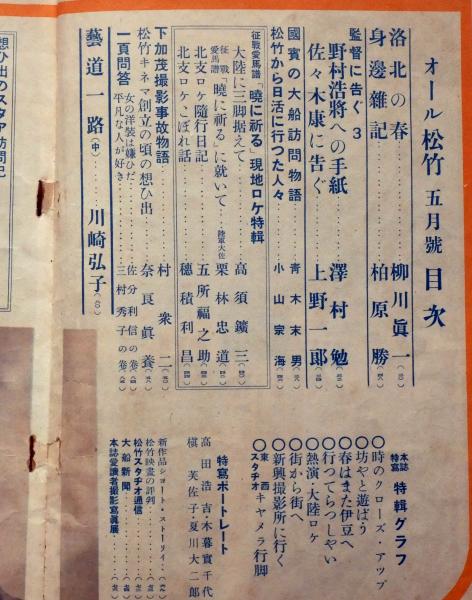 オール松竹 五月號 目次
洛北の春……柳川眞一
身邊雜記……柏原勝
監督に告ぐ 3
野村浩將への手紙……澤村勉
佐々木康に告ぐ……上野一郎
國賓の大船訪問物語……青木末男
松竹から日活に行つた人々……小山宗海
征戰愛馬譜 "曉に祈る" 現地ロケ特輯
大陸に三脚据えて……高須鑛三
征戰愛馬譜「曉に祈る」に就いて……陸軍大佐 栗林忠道
北支ロケ隨行日記……五所福之助
北支ロケこぼれ話……穗積利昌
下加茂撮影事故物語……村衆二
松竹キネマ創立の頃の想ひ出……奈良眞養
一頁問答
女の洋裝は嫌ひだ……佐分利信の卷
平凡な人が好き……三村秀子の卷
藝道一路(中)……川崎弘子
本誌特寫 特輯グラフ
○時のクローズ・アップ
○坊やと遊ばう
○春はまた伊豆へ
○行つてらつしやい
○熱演・大陸ロケ
○街から街へ
○新興撮影所に行く
○東西スタヂオ キヤメラ行脚
特寫ポートレート
高田浩吉・木暮實千代
槇芙佐子・夏川大二郎
新作品シヨート・ストーリイ
松竹映畫の評判
松竹スタヂオ通信
大船新聞
本誌愛讀者撮影寫眞展
想ひ出のスタア訪問記